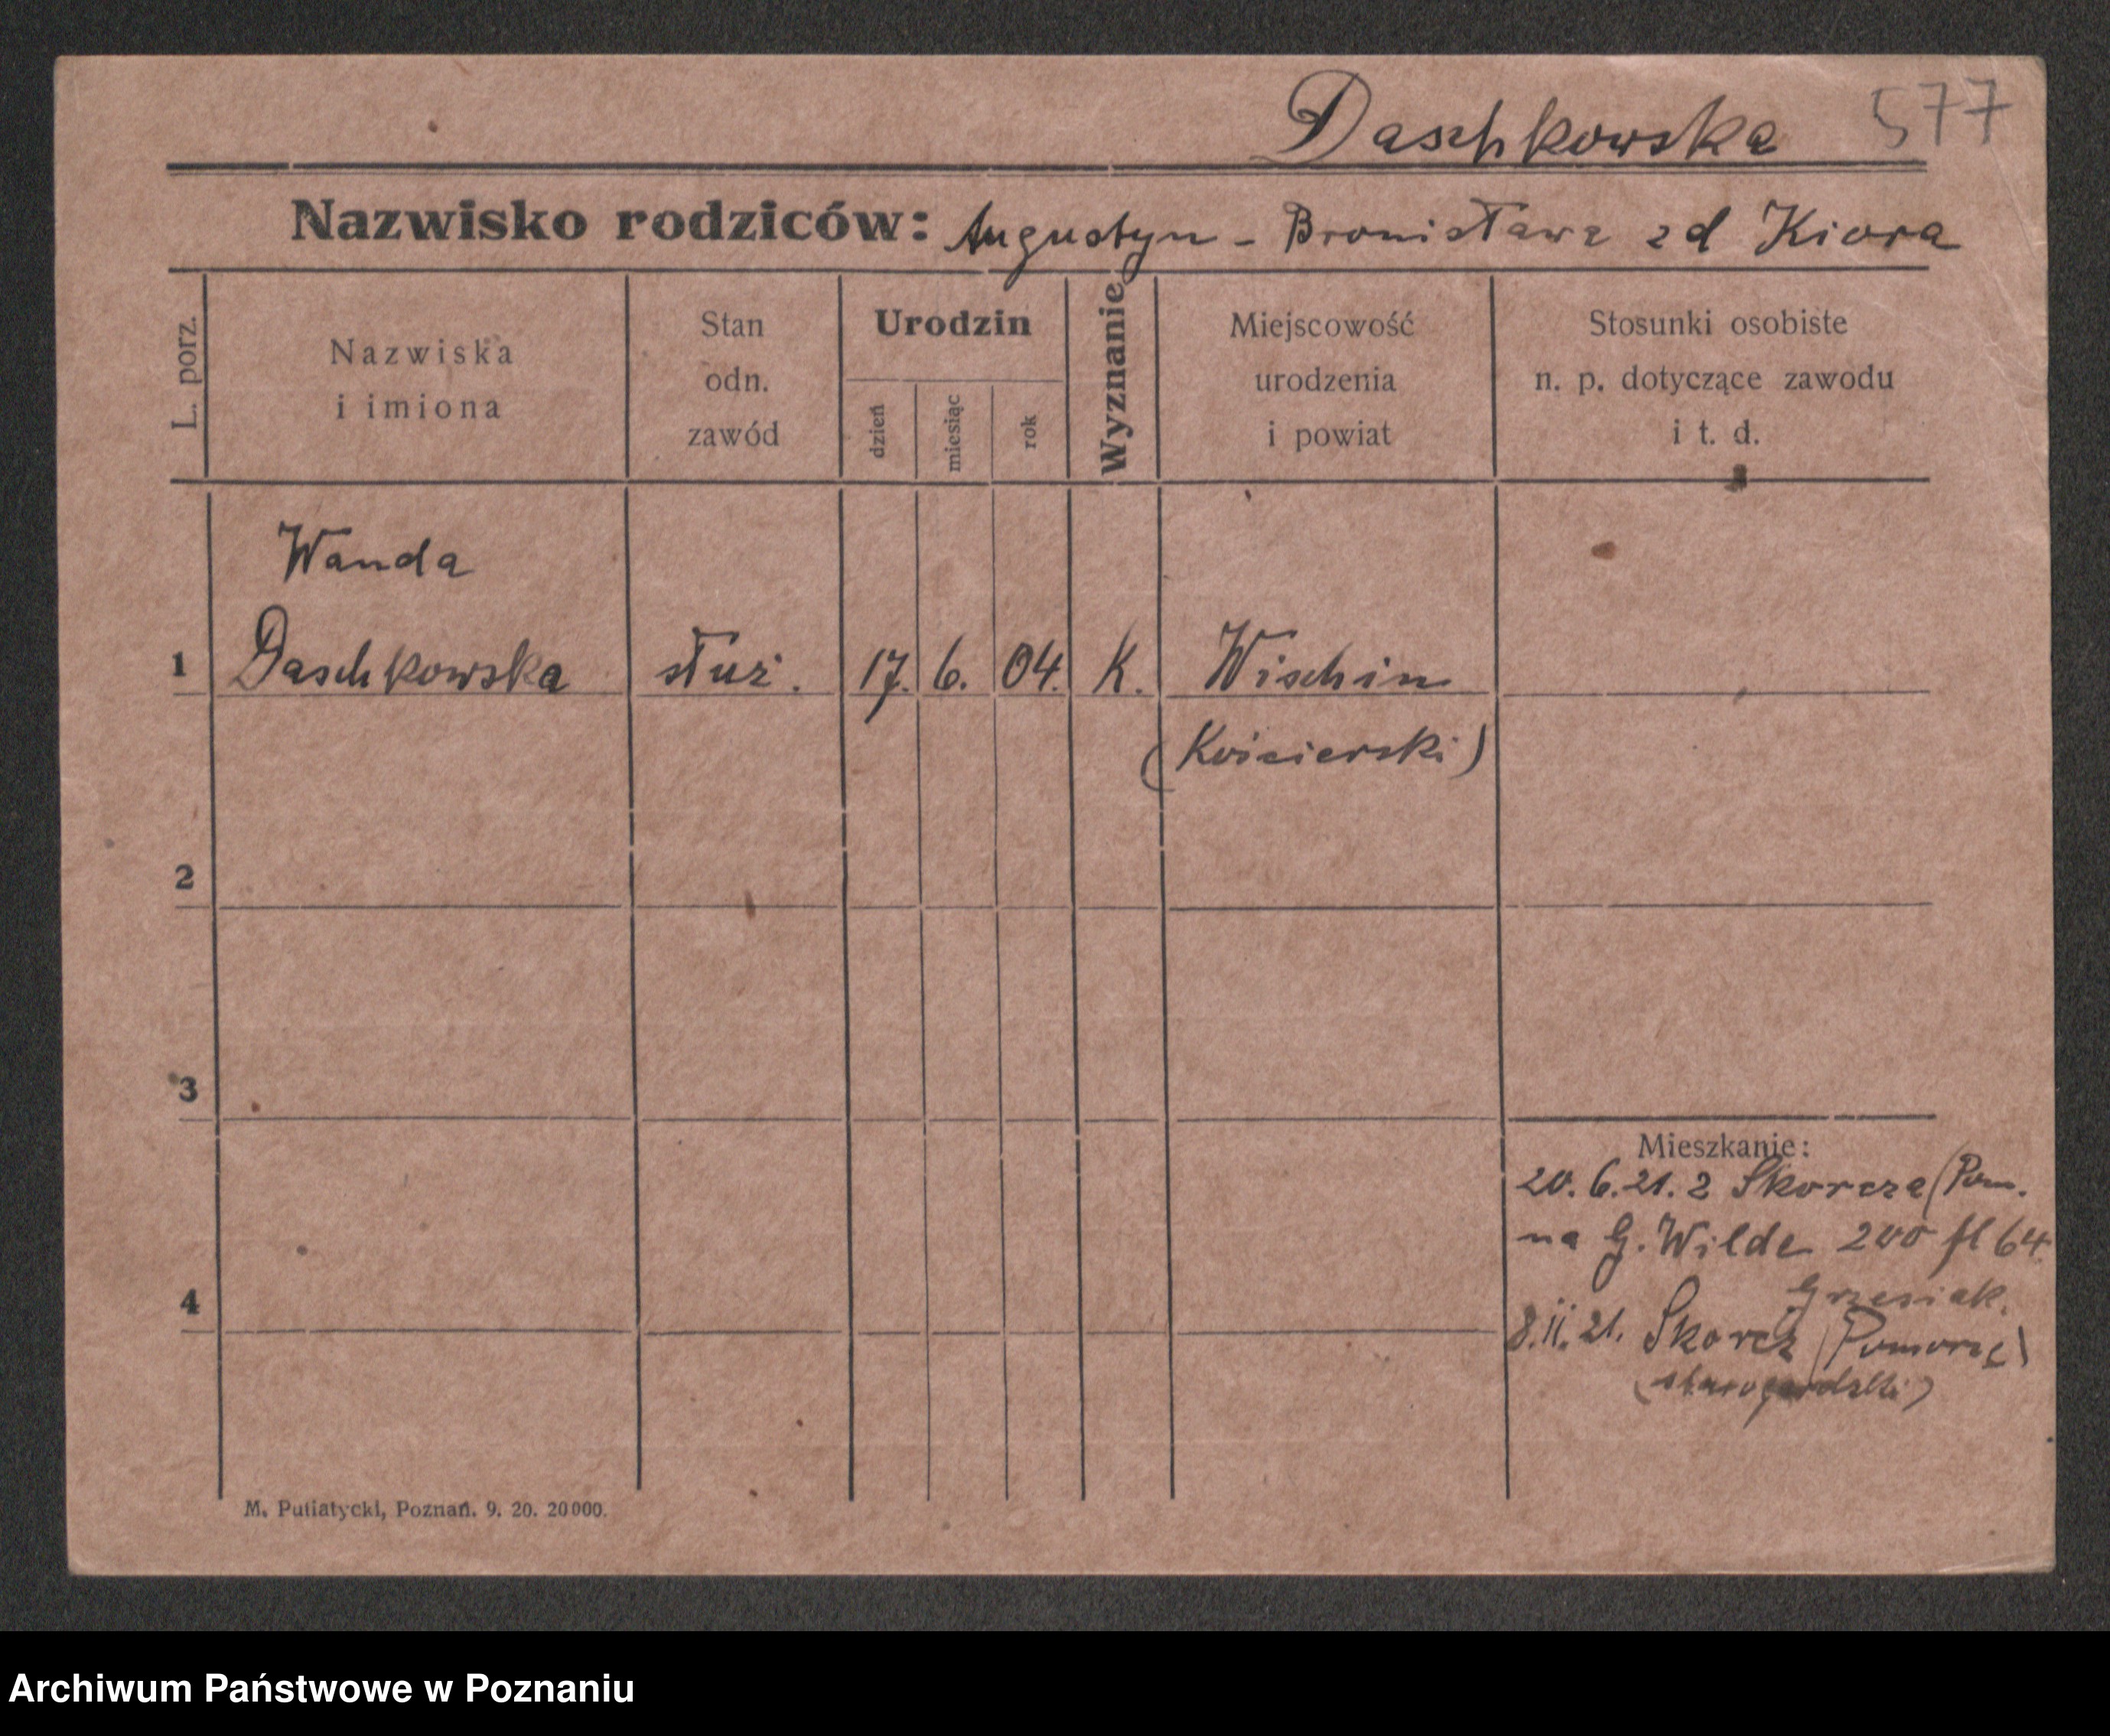 Daschkowska 577
Nazwisko rodziców: Augustyn - Bronisława zd Kiora
L. porz.
Nazwiska
i imiona
Stan
odn.
zawód
Urodzin
dzień
miesiąc
rok
Wyznanie
Miejscowość
urodzenia
i powiat
Stosunki osobiste
n. p. dotyczące zawodu
i t. d.
Wanda
1 Daschkowska służ. 17. 6. 04. K. Wischin
(Kościerski)
2
3
Mieszkanie:
20.6.21. z Skorcza (Pom.
na G. Wilde 200 fl 64
Grzesiak.
4
8.11.21. Skorcz (Pomorze)
(starogardzki)
M. Putiatycki, Poznań. 9. 20. 20000.
Archiwum Państwowe w Poznaniu